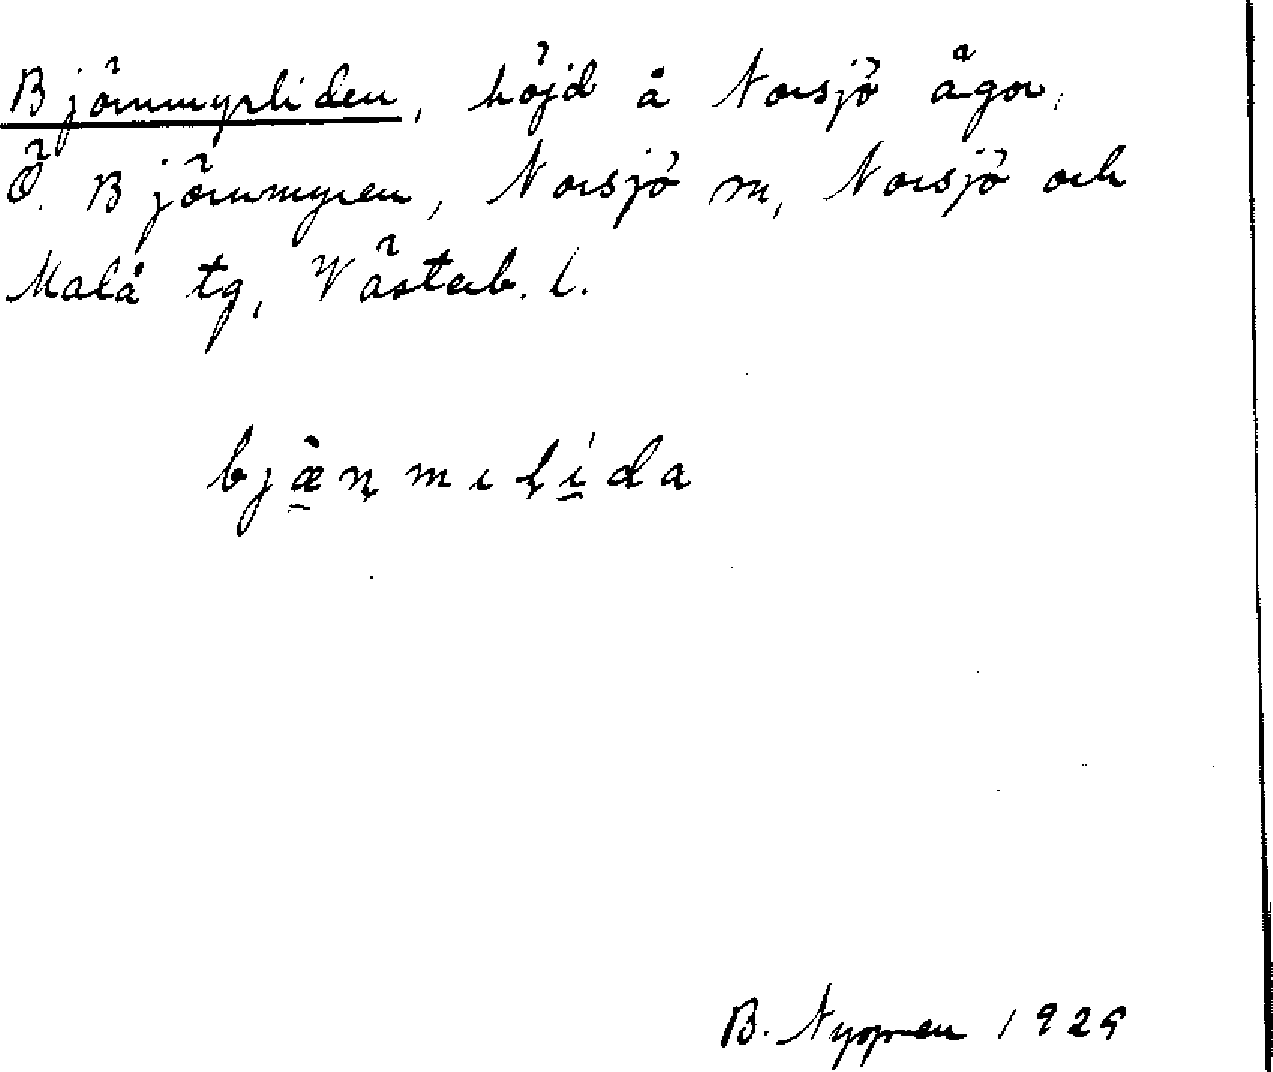 Björnmyrliden, höjd å Norsjö ägor,
Ö. Björnmyren, Norsjö sn, Norsjö och
Malå tg, Västerb. l.
bjæ̀ṇmılı́da
B. Nyman 1929